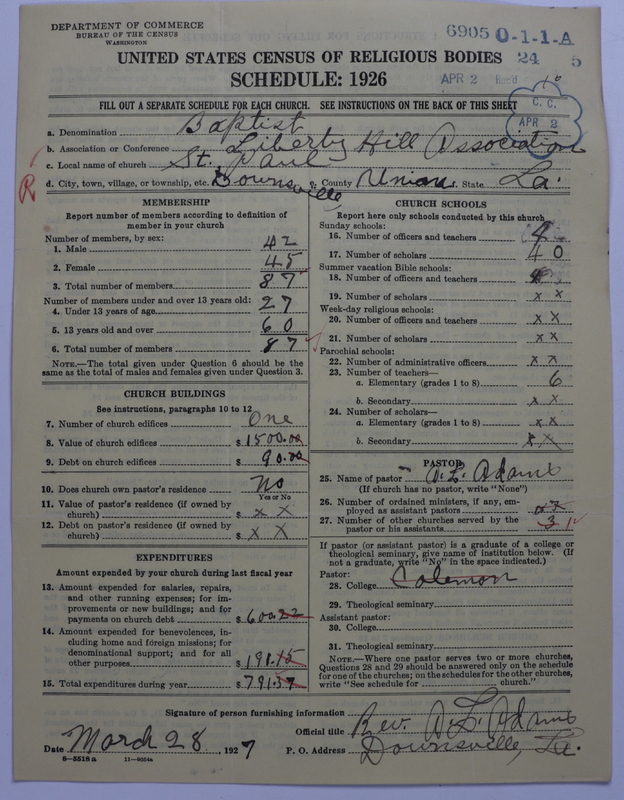 DEPARTMENT OF COMMERCE
BUREAU OF THE CENSUS
WASHINGTON
6905 0-1-1-A
24 5
UNITED STATES CENSUS OF RELIGIOUS BODIES
SCHEDULE: 1926
APR 2 Rec'd
FILL OUT A SEPARATE SCHEDULE FOR EACH CHURCH. SEE INSTRUCTIONS ON THE BACK OF THIS SHEET
C. C.
APR 2
a. Denomination Baptist
b. Association or Conference Liberty Hill Association
c. Local name of church St. Paul
d. City, town, village, or township, etc. Downsville e. County Union f. State La.
R
MEMBERSHIP
Report number of members according to definition of
member in your church
Number of members, by sex:
1. Male 42
2. Female 45
3. Total number of members 87
Number of members under and over 13 years old:
4. Under 13 years of age 27
5. 13 years old and over 60
6. Total number of members 87
NOTE.—The total given under Question 6 should be the
same as the total of males and females given under Question 3.
CHURCH BUILDINGS
See instructions, paragraphs 10 to 12
7. Number of church edifices One
8. Value of church edifices $1500.00
9. Debt on church edifices $ 90.00
10. Does church own pastor's residence No
Yes or No
11. Value of pastor's residence (if owned by
church) $ x x
12. Debt on pastor's residence (if owned by
church) $ x x
EXPENDITURES
Amount expended by your church during last fiscal year
13. Amount expended for salaries, repairs,
and other running expenses; for im-
provements or new buildings; and for
payments on church debt $600.22
14. Amount expended for benevolences, in-
cluding home and foreign missions; for
denominational support; and for all
other purposes $191.15
15. Total expenditures during year $791.37
CHURCH SCHOOLS
Report here only schools conducted by this church
Sunday schools:
16. Number of officers and teachers 4
17. Number of scholars 40
Summer vacation Bible schools:
18. Number of officers and teachers
19. Number of scholars x x
Week-day religious schools:
20. Number of officers and teachers x x
21. Number of scholars x x
Parochial schools:
22. Number of administrative officers x x
23. Number of teachers—
a. Elementary (grades 1 to 8) 6
b. Secondary x x
24. Number of scholars—
a. Elementary (grades 1 to 8) x x
b. Secondary x x
PASTOR
25. Name of pastor A. L. Adams
(If church has no pastor, write "None")
26. Number of ordained ministers, if any, em-
ployed as assistant pastors
27. Number of other churches served by the
pastor or his assistants 3
If pastor (or assistant pastor) is a graduate of a college or
theological seminary, give name of institution below. (If
not a graduate, write "No" in the space indicated.)
Pastor:
28. College Colemon
29. Theological seminary
Assistant pastor:
30. College
31. Theological seminary
NOTE.—Where one pastor serves two or more churches,
Questions 28 and 29 should be answered only on the schedule
for one of the churches; on the schedules for the other churches,
write "See schedule for church."
Signature of person furnishing information Rev. A. L. Adams
Official title
Date March 28, 1927 P. O. Address Downsville, La.
8-5518 a 11-9054a